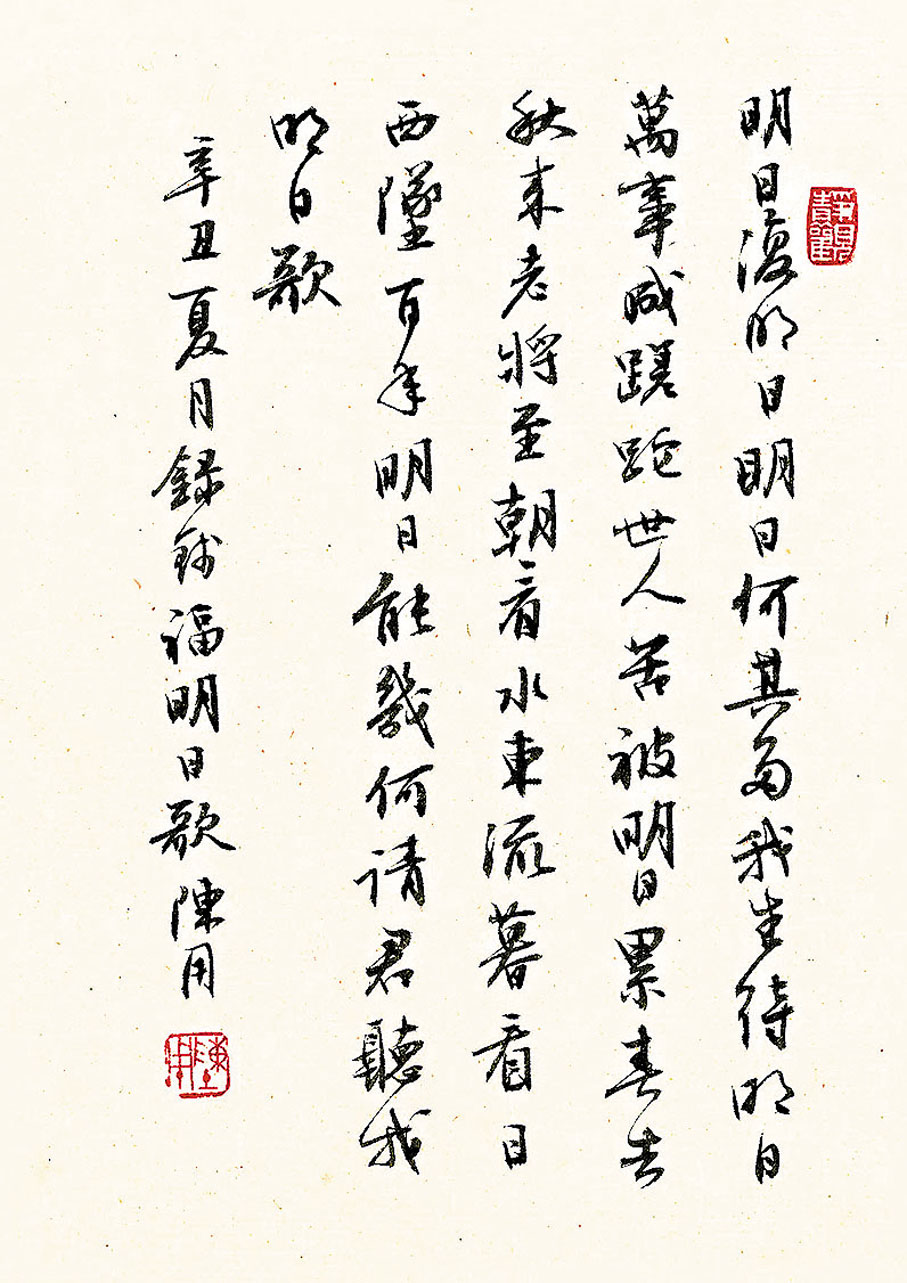 明日復明日明日何其多我生待明日
萬事成蹉跎世人苦被明日累春去
秋来老將至朝看水東流暮看日
西墜百年明日能幾何请君聽我
明日歌
辛丑夏月録錢福明日歌陳用
靜觀